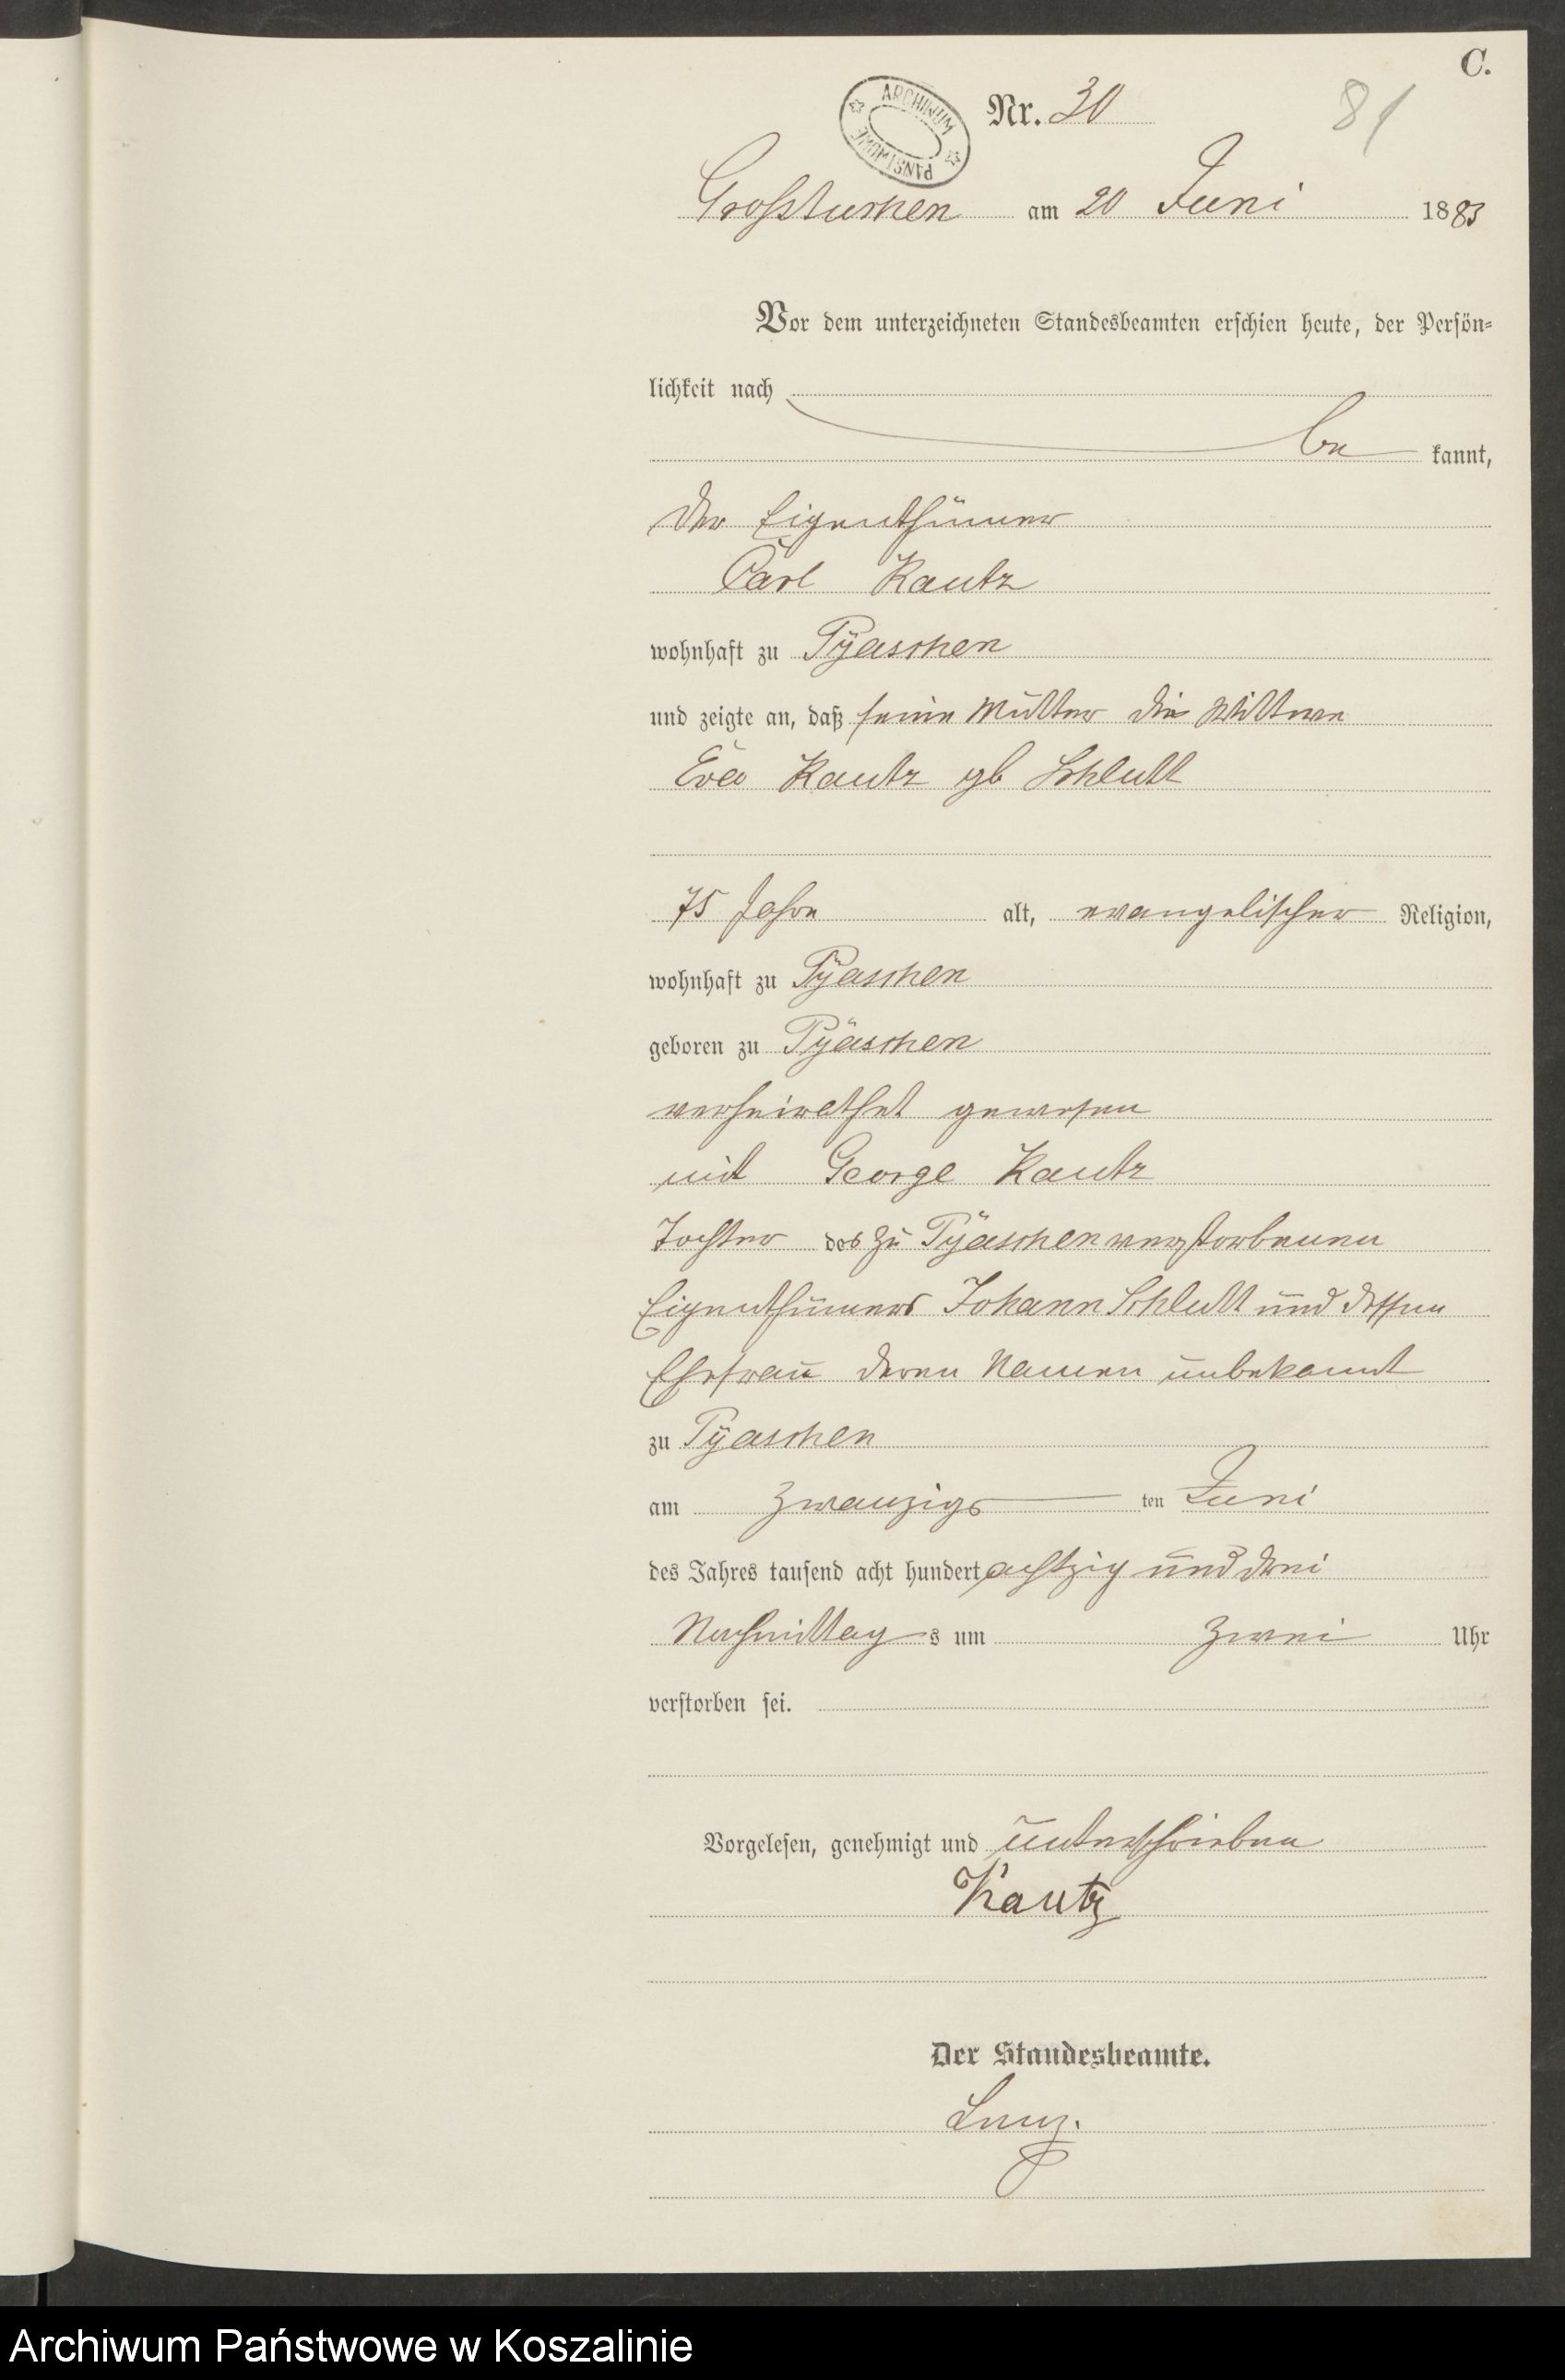 C.
ARCHIWUM PAŃSTWOWE
Nr. 30
81
Grosstuchen am 20 Juni 1883
Vor dem unterzeichneten Standesbeamten erschien heute, der Persön=
lichkeit nach
be kannt,
der Eigenthümer
Carl Kautz
wohnhaft zu Pyaschen
und zeigte an, daß seine Mutter die Wittwe
Eva Kautz gb Schlutt
75 Jahre alt, evangelischer Religion,
wohnhaft zu Pÿaschen
geboren zu Pÿaschen
verheirathet gewesen
mit George Kautz
Tochter des zu Pÿaschen verstorbenen
Eigenthümers Johann Schlutt und dessen
Ehefrau deren Namen unbekannt
zu Pÿaschen
am zwanzigs ten Juni
des Jahres tausend acht hundert achtzig und drei
Nachmittag s um zwei Uhr
verstorben sei.
Vorgelesen, genehmigt und unterschrieben
Kautz
Der Standesbeamte.
Archiwum Państwowe w Koszalinie